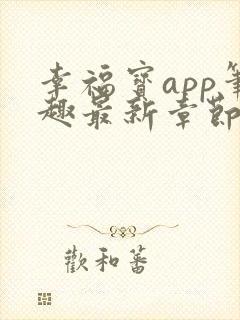 幸福寳app筆
趣最新章節
歡和蕃